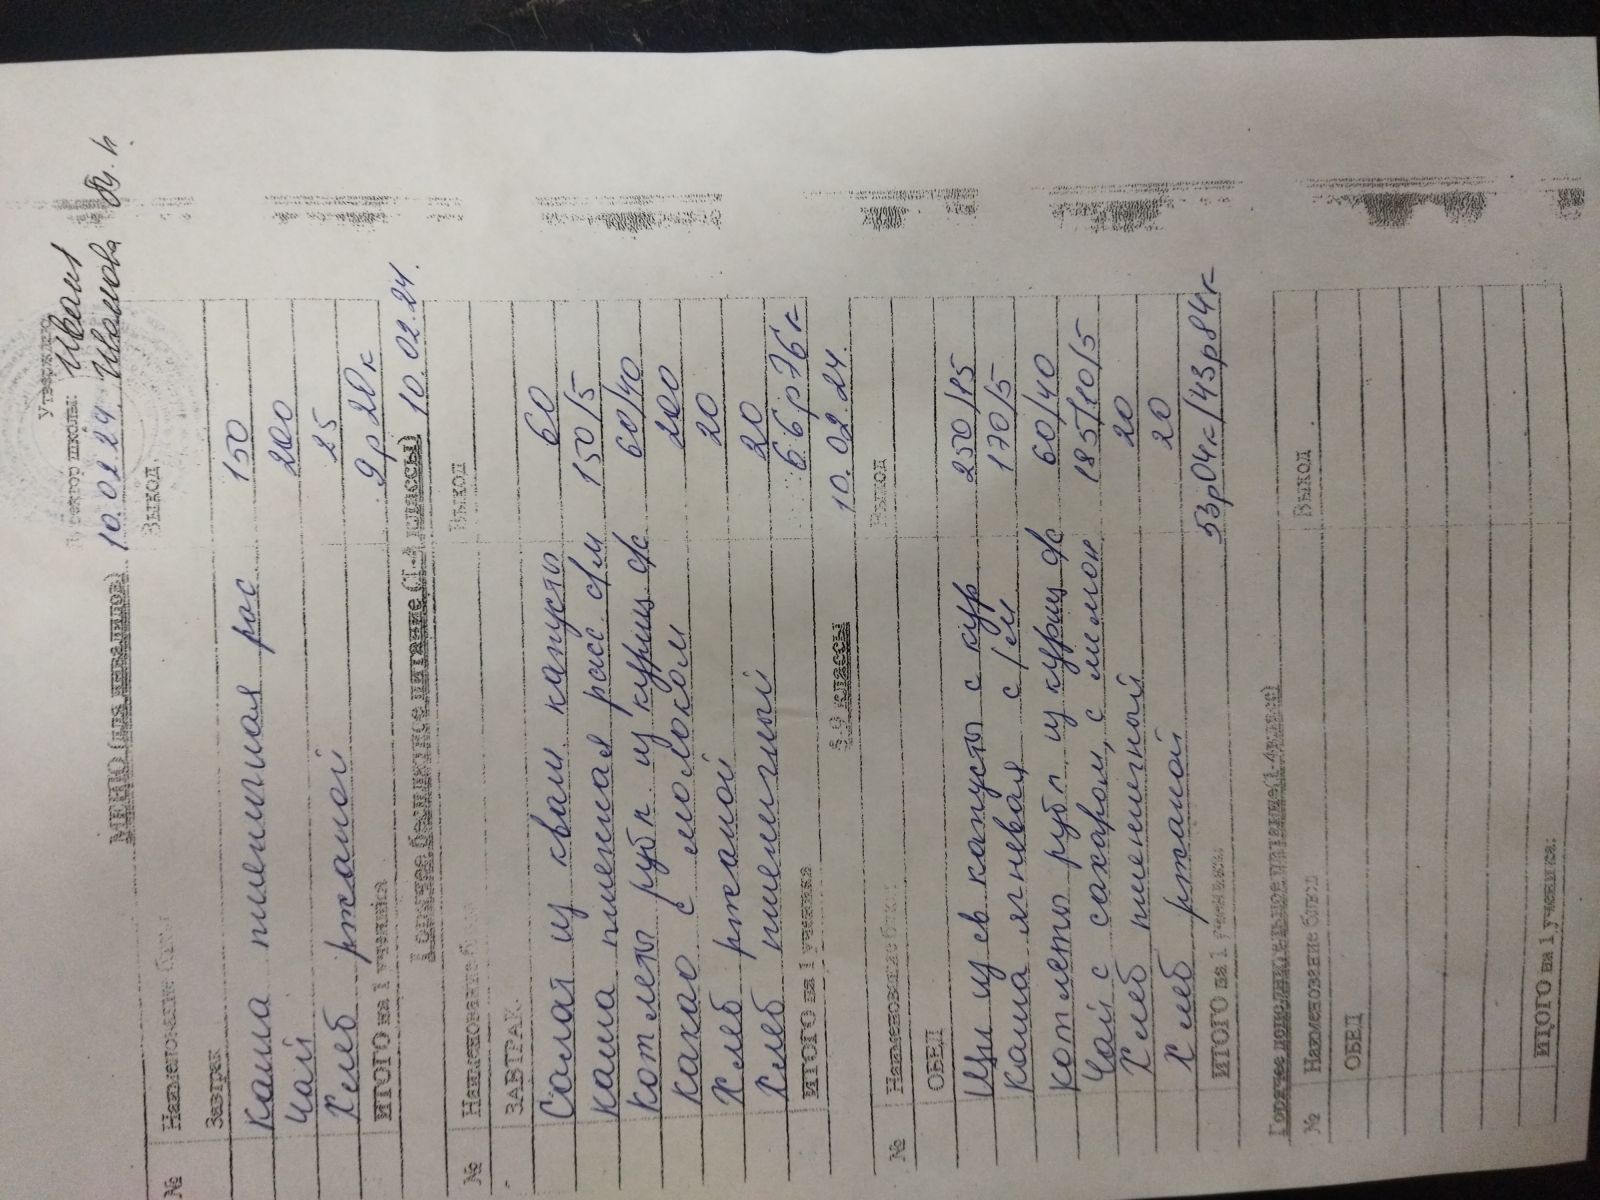 Утверждаю
Директор школы:
10.02.24 Иванова
МЕНЮ (для инвалидов)
№ Наименование блюд Выход
Завтрак
Каша пшеничная рас 150
Чай 200
Хлеб ржаной 25
ИТОГО на 1 ученика 9р 20к
Горячее бесплатное питание (1-4 классы) 10.02.24.
№ Наименование блюд Выход
ЗАВТРАК
Салат из кваш капусты 60
каша пшеничная расс с/м 150/5
Котлеты рубл из куриц о/с 60/40
какао с молоком 200
Хлеб ржаной 20
Хлеб пшеничный 20
ИТОГО на 1 ученика 66р 76к
5-9 классы 10.02.24.
№ Наименование блюд Выход
ОБЕД
Щи из св капусты с кур 250/15
Каша ячневая с/м 170/5
котлеты рубл из куриц о/с 60/40
Чай с сахаром, с лимон 185/10/5
Хлеб пшеничный 20
Хлеб ржаной 20
ИТОГО на 1 ученика: 53р04к/43р84к
Горячее дополнительное питание(1-4класс)
№ Наименование блюд Выход
ОБЕД
ИТОГО на 1 ученика: